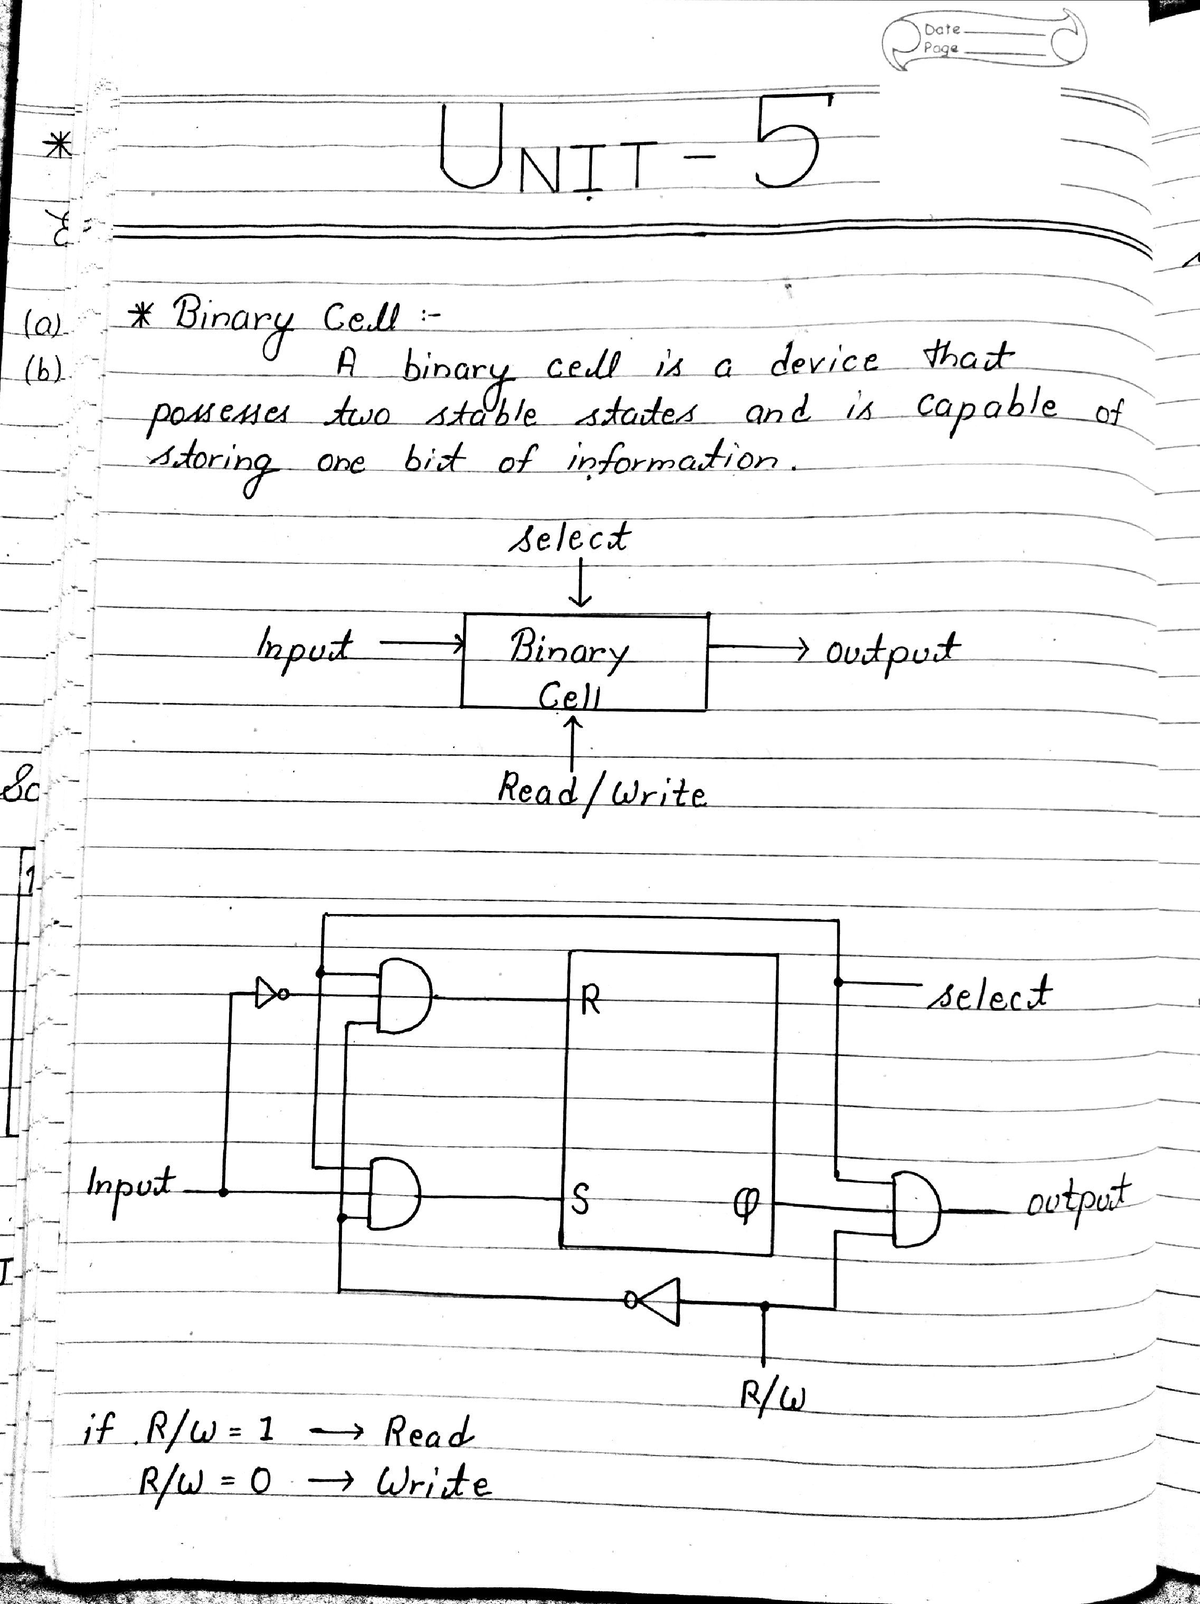 Date
Page
UNIT - 5
*
(a)
(b)
* Binary Cell :-
A binary cell is a device that
possesses two stable states and is capable of
storing one bit of information.
select
Input Binary output
Cell
Read/Write
So
1
R select
Input S Q output
I
R/W
if R/W = 1 → Read
R/W = 0 → Write